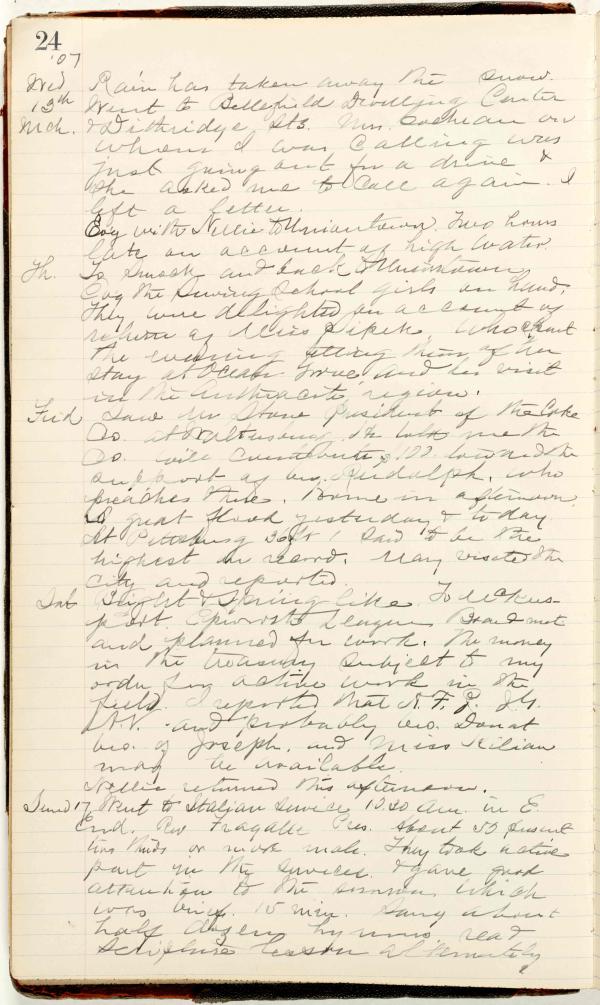 24
'07
Wed Rain has taken away the snow.
13th Went to Bellefield Dwelling Center
Mch. & Dithridge Sts. Mrs. Cochran on
whom I was calling was
just going out for a drive &
she asked me to call again. I
left a letter.
Evg with Nellie to Uniontown. Two hours
late on account of high water
Th. To Smock and back to Uniontown
Evg the Sewing School girls on hand.
They were delighted on account of
return of Miss who spent
the evening telling them of her
stay at Ocean Grove and his visit
in the Anthracite region.
Frid Saw Mr Stone President of the Coke
Co. at He told me the
Co. will contribute $100 toward the
support of Bro. Rudolph, who
preaches there. Home in afternoon
A great flood yesterday & today
At Pittsburg 36 ft ! Said to be the
highest on record. May visited the
city and reported.
Sat Bright & Spring like. To McKees-
port Epworth League Board met
and planned for work. The money
in the treasury subject to my
order for active work in the
field. I reported that
and probably Bro. Donat
bro. of Joseph, and Miss Kilian
may be available.
Nellie returned this afternoon.
Sund 17 Went to Italian Service 10.30 Am. in E.
End. Rev Fragale Pres. About 50 present
two thirds or more male. They took active
part in the services & gave good
attention to the sermon which
was brief. 15 min. Sang about
half dozen hymns read
Scripture lesson alternately